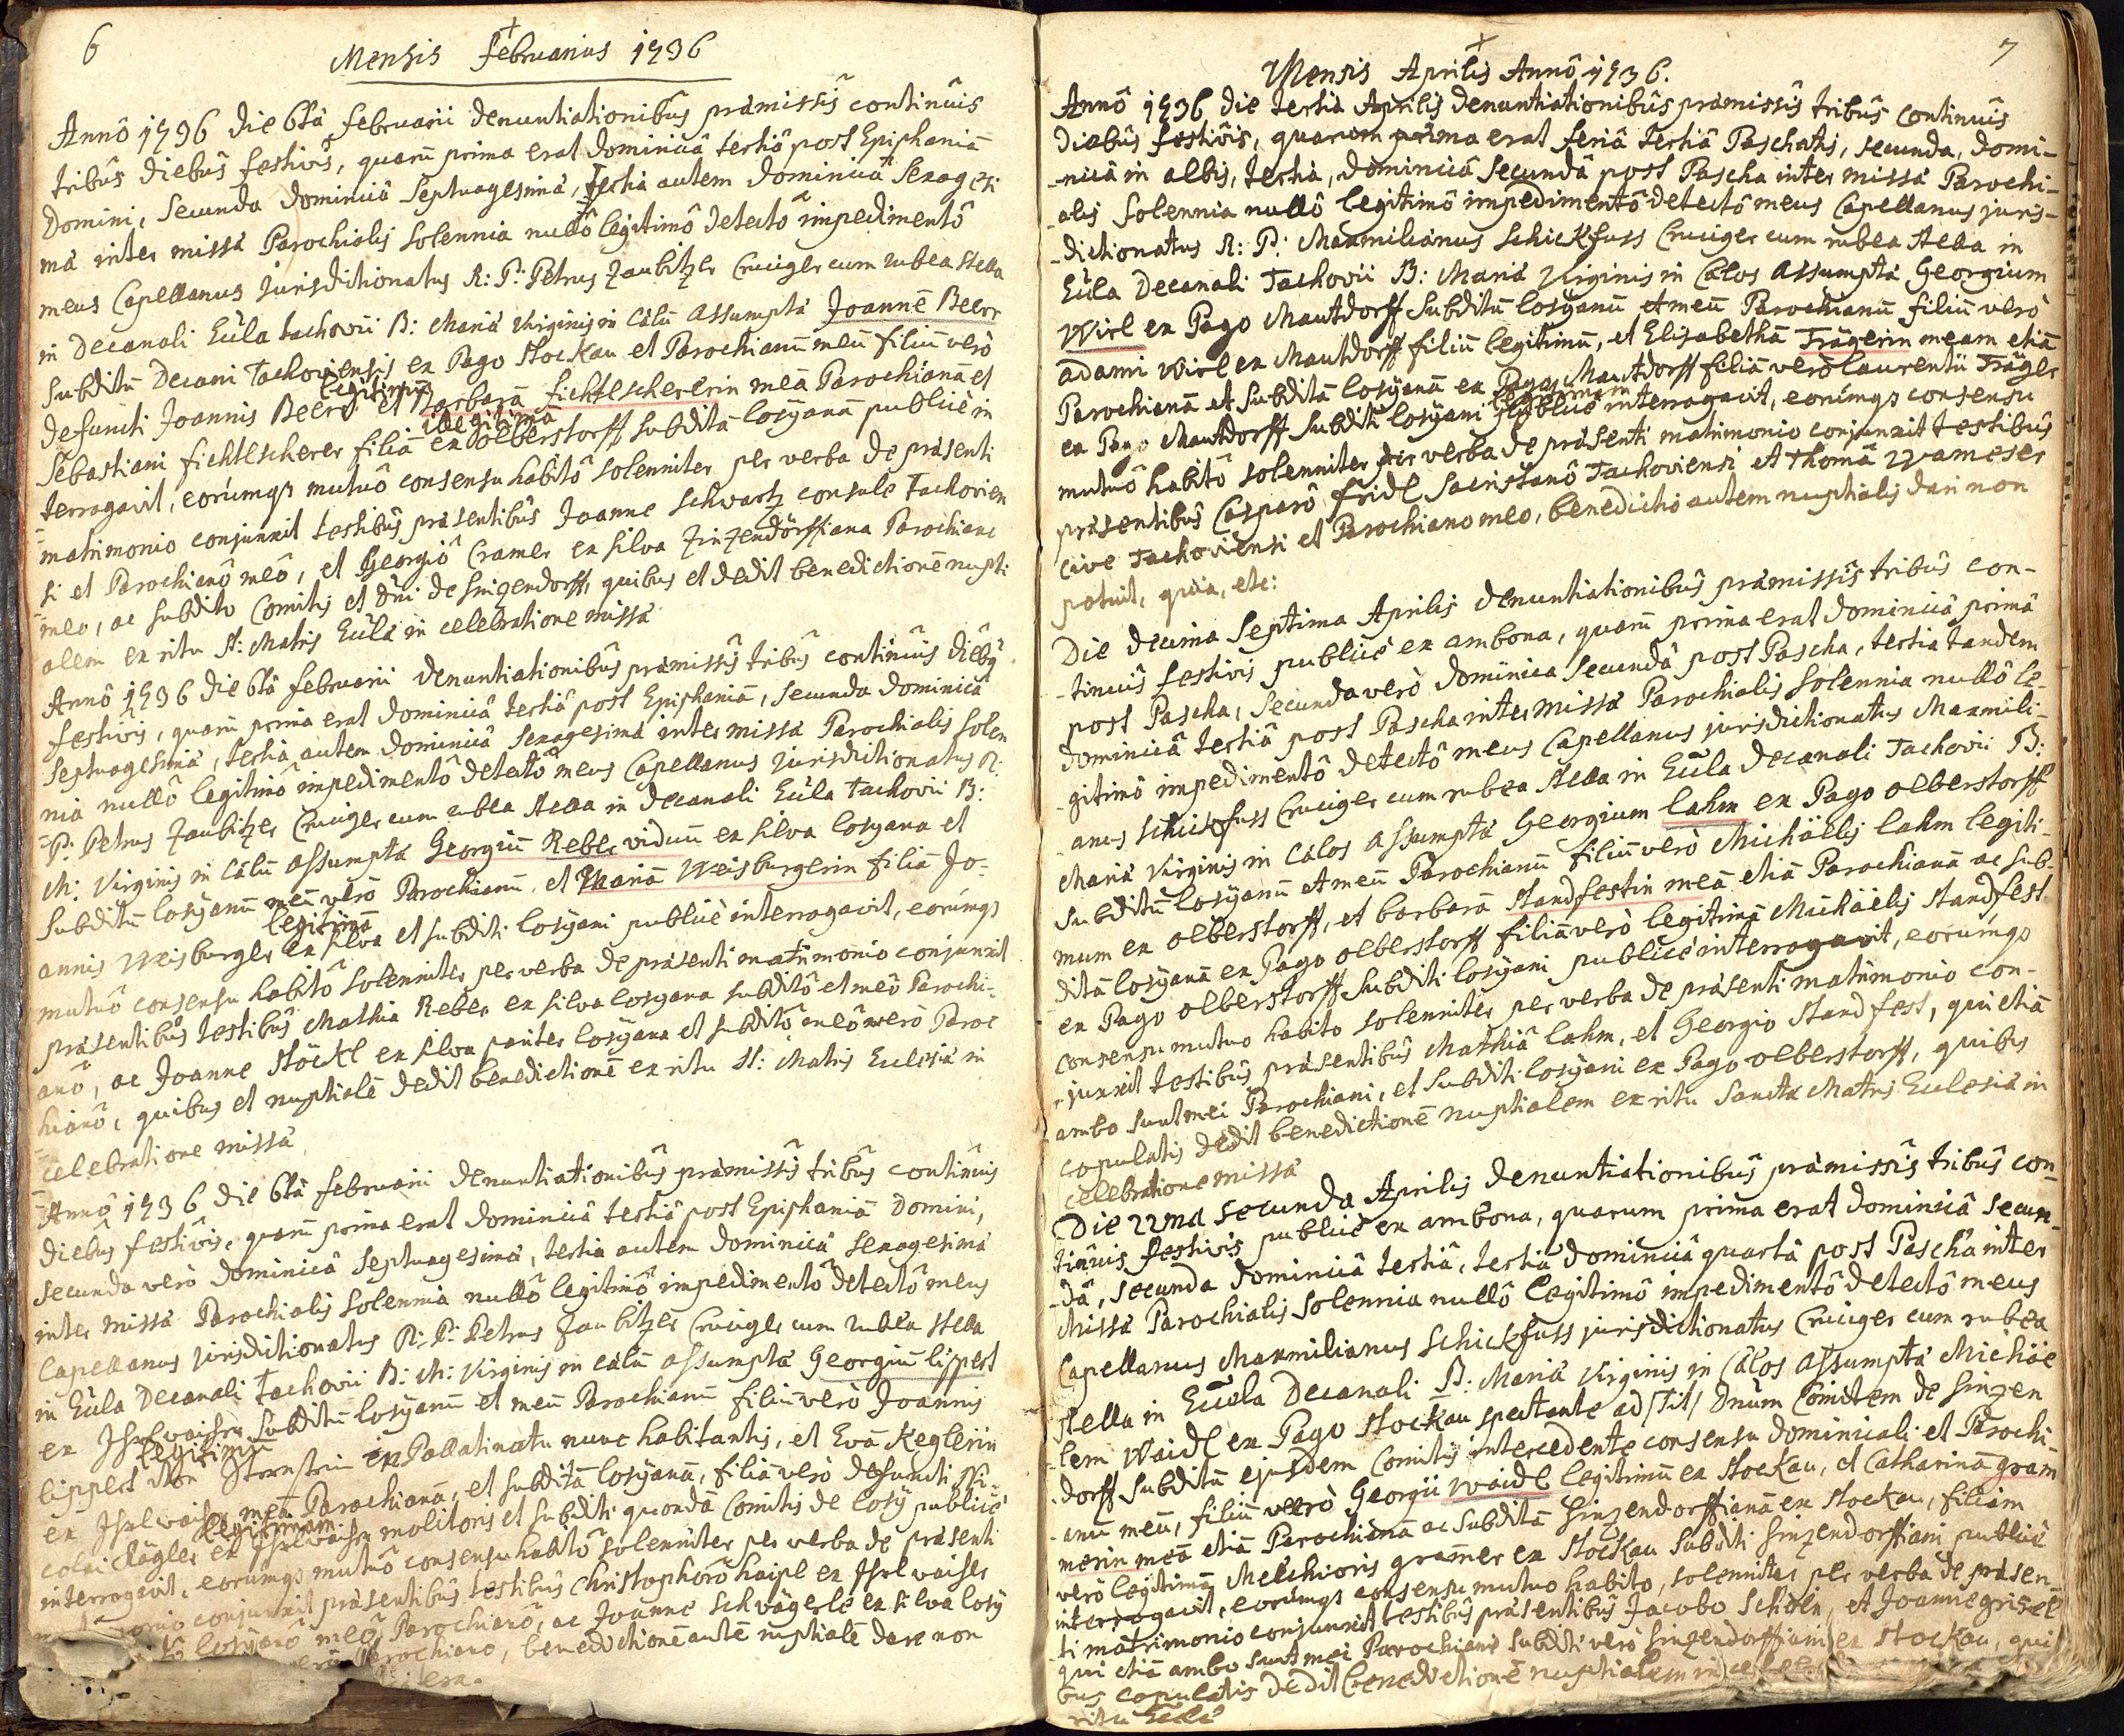 6
Mensis Februarius 1736
Annô 1736 die 6tâ Februarii denuntiationibûs præmissîs continûis
tribûs diebûs festivîs, quarū prima erat dominicâ tertiâ post Epiphaniā
Domini, secunda dominicâ Septuagesimæ, tertia autem dominicâ Sexagesi
mæ inter missæ Parochialis solennia nullô legitimô detectô impedimentô
meus Capellanus jurisdictionatus R: P: Petrus Zaubitzer Cruciger cum rubea stella
in Decanali Eccl̄a tachovii B: Mariæ Virginis in cælū assumptæ Joannē Beerr
subditū Decani Tachoviensis ex Pago Stockau et Parochianū meū filiū verò
defuncti Joannis Beerr legitimū et Barbarā Fichtlschererin meā Parochianā et
Sebastiani Fichtlscherer filiā legitimā ex Olberstorff subditā losÿanā publicè in
terrogavit, eorúmqs mutuô consensu habitô solenniter per verba de præsenti
matrimonio conjunxit testibûs præsentibûs Joanne Schwartz consule Tachovien
si et Parochianô meô, et Georgiô Cramer ex silva Zinzendorffiana Parochiano
meo, ac subdito Comitis et Dn̄i de Sinzendorff, quibus et dedit benedictionē nupti
alem ex ritu S: Matris Eccl̄æ in celebratione missæ
Annô 1736 die 6tâ Februarii denuntiationibûs præmissîs tribûs continûis diebq
festivîs, quarū prima erat dominicâ tertiâ post Epiphaniā, secunda dominicâ
Septuagesimæ, tertia autem dominicâ Sexagesimæ inter missæ Parochialis solen
nia nullô legitimô impedimentô detectô meus Capellanus jurisdictionatus R:
P: Petrus Zaubitzer Cruciger cum rubea stella in decanali Eccl̄a tachovii B:
M: Virginis in cælū assumptæ Georgiū Reber viduū ex silva losyana et
subditū losyanū meū verò Parochianū, et Mariā Weisburgerin filiā Jo-
annis Weisburger legitimā ex silva et subditi losÿani publicè interrogavit, eorúmqs
mutuô consensu habitô solenniter per verba de præsenti matrimonio conjunxit
præsentibûs testibûs Mathia Reber ex silva losyana subditô et meô Parochi-
anô, ac Joanne Stöckl ex silva pariter losÿana et subditô meô verò Paroc
hianô, quibus et nuptialē dedit benedictionē ex ritu S: Matris Ecclesiæ in
celebratione missæ
Annô 1736 die 6tâ Februarii denuntiationibûs præmissîs tribûs continûis
diebus festivîs, quarū prima erat dominicâ tertiâ post Epiphaniā Domini,
secunda verò dominicâ Septuagesimæ, tertia autem dominicâ Sexagesimæ
inter missæ Parochialis solennia nullô legitimô impedimentô detectô meus
Capellanus jurisdictionatus R: P: Petrus Zaubitzer Cruciger cum rubea stella
in Eccl̄a Decanali tachovii B: M: Virginis in cælū assumptæ Georgiū lippert
ex Ihrlwaiher subditū losÿanū et meū Parochianū filiū verò Joannis
lippert legitimū von Sternstein ex Pallatinatu nunc habitantis, et Evā Keglerin
ex Ihrlwaiher meā Parochianā, et subditā losÿanā, filiā verò defuncti Ni-
colai Kägler legitimam ex Ihrlwaiher molitoris et subditi quondā Comitis de losÿ publicè
interrogavit, eorúmqs mutuô consensu habitô solenniter per verba de præsenti
conjunxit præsentibûs testibûs Christophorô haipl ex Ihrlwaiher
losÿanô meô Parochianô, ac Joanne Schwägerle ex silva losÿ
Parochiano, benedictionē autē nuptialē dare non
7
Mensis Aprilis Annô 1736.
Annô 1736 die tertiâ Aprilis denuntiationibûs præmissîs tribûs continûis
diebûs festivîs, quarum prima erat feriâ tertiâ Paschatis, secunda, domi-
-nicâ in albis, tertia, dominicâ secundâ post Pascha inter missæ Parochi-
-alis solennia nullô legitimô impedimentô detectô meus Capellanus juris-
-dictionatus R: P: Maxmilianus Schickfuss Cruciger cum rubea stella in
Eccl̄a Decanali Tachovii B: Mariæ Virginis in Cælos assumptæ Georgium
Wirl ex Pago Mautdorff subditū losÿanū et meū Parochianū filiū verò
adami Wirl ex Mautdorff filiū legitimū, et Elisabethā Trägerin meam etiā
Parochianā et subditā losÿanā ex Pago Mautdorff filiā verò laurentii Träger
ex Pago Mautdorff subditi losÿani legitimam publicè interrogavit, eorúmqs consensu
mutuô habitô solenniter per verba de præsenti matrimonio conjunxit testibûs
præsentibûs Casparô Fridl Sacristanô Tachoviensi et Thomâ Wameser
cive Tachoviensi et Parochiano meo, benedictio autem nuptialis dari non
potuit, quia, etc:
Die decima septima Aprilis denuntiationibûs præmissîs tribûs con-
-tinuîs festivis publicè ex ambona, quarū prima erat dominicâ primâ
post Pascha, secunda verò dominica secundâ post Pascha, tertia tandem
dominicâ tertiâ post Pascha inter missæ Parochialis solennia nullô le-
-gitimô impedimentô detectô meus Capellanus jurisdictionatus Maxmili-
anus Schickfuss Cruciger cum rubea stella in Eccl̄a Decanali Tachovii B:
Mariæ Virginis in Cælos assumptæ Georgium lahm ex Pago Olberstorff
subditū losÿanū et meū Parochianū filiū verò Michäelis lahm legiti-
mum ex Olberstorff, et barbarā Standfestin meā etiā Parochianā ac sub-
ditā losÿanā ex Pago Olberstorff filiā verò legitimā Michäelis Standfest
ex Pago Olberstorff subditi losÿani publicè interrogavit, eorúmqs
consensu mutuo habito solenniter per verba de præsenti matrimonio con-
-junxit testibûs præsentibûs Mathiâ lahm, et Georgio Standfest, qui etiā
ambo sunt mei Parochiani, et subditi losÿani ex Pago Olberstorff, quibus
copulatis dedit benedictionē nuptialem ex ritu Sanctæ Matris Ecclesiæ in
celebratione missæ
Die 22ma secunda Aprilis denuntiationibûs præmissîs tribûs con-
tinûis festivîs publicè ex ambona, quarum prima erat dominicâ secun-
-dâ, secunda dominicâ tertiâ, tertia dominicâ quartâ post Pascha inter
Missæ Parochialis solennia nullô legitimô impedimentô detectô meus
Capellanus Maxmilianus Schickfuss jurisdictionatus Cruciger cum rubea
stella in Eccl̄a Decanali B: Mariæ Virginis in Cælos assumptæ Michäe
-lem Waidl ex Pago Stockau spectante ad /Tit/ Dnūm Comitem de Sinzen
-dorff subditū ejusdem Comitis intercedente consensu dominicali et Parochi-
-anū meū, filiū verò Georgii Waidl legitimū ex Stockau, et Catharinā gram
merin meā etiā Parochianā ac subditā Sinzendorffianā ex Stockau, filiam
verò legitimā Melchioris gram̄er ex Stockau subditi Sinzendorffiani publicè
interrogavit, eorúmqs consensu mutuo habito, solenniter per verba de præsen-
ti matrimonio conjunxit testibûs præsentibûs Jacobo Schoen, et Joanne grisel
qui etiā ambo sunt mei Parochiani subditi verò Sinzendorffiani ex Stockau, qui
bus copulatis dedit benedictionē nuptialem in
ritu Eccl̄æ